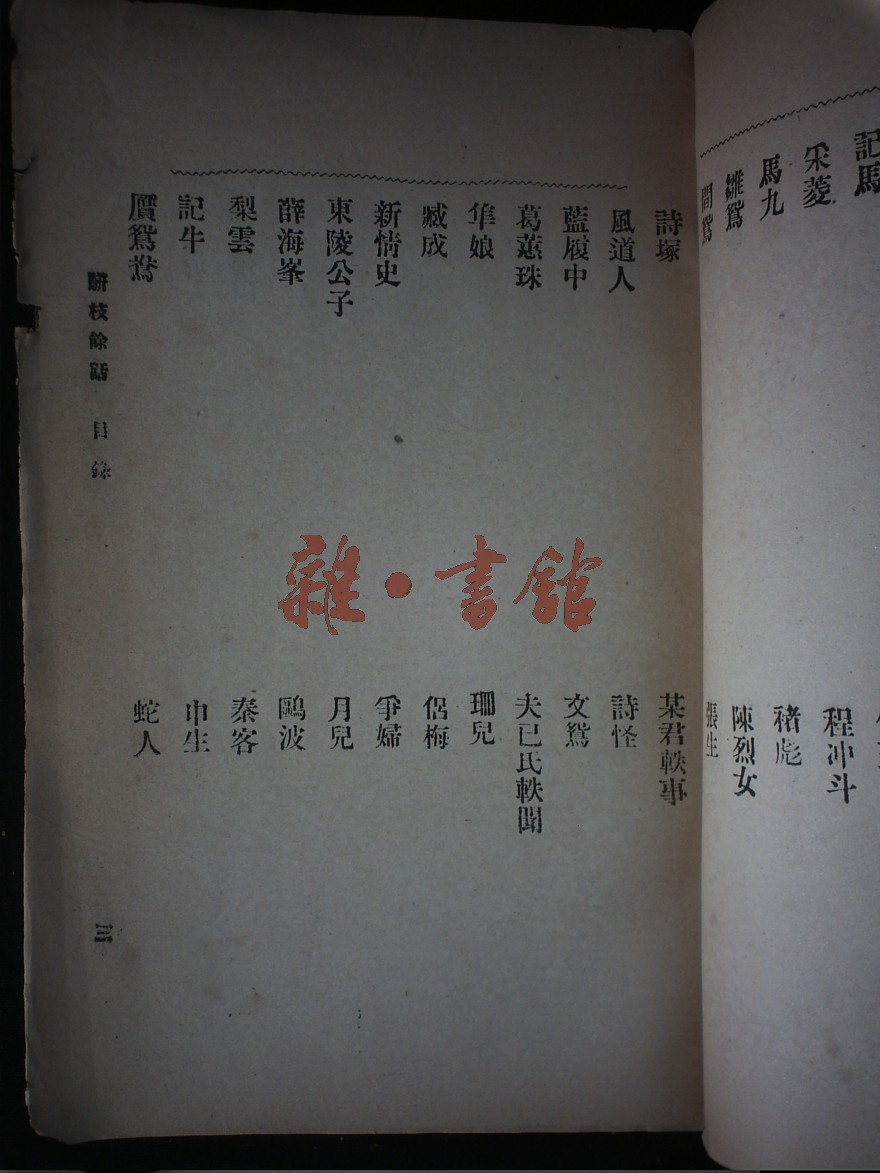 記馬
采菱
程冲斗
馬九
禇彪
雛鴛
陳烈女
張生
詩塚
某君軼事
風道人
詩怪
藍履中
文鴛
葛蕙珠
夫已氏軼聞
隼娘
珊兒
臧成
侶梅
新情史
爭婦
東陵公子
月兒
薛海峯
鷗波
梨雲
秦客
記牛
申生
贋鴛鴦
蛇人
駢枝餘話 目錄 三
雜·書館